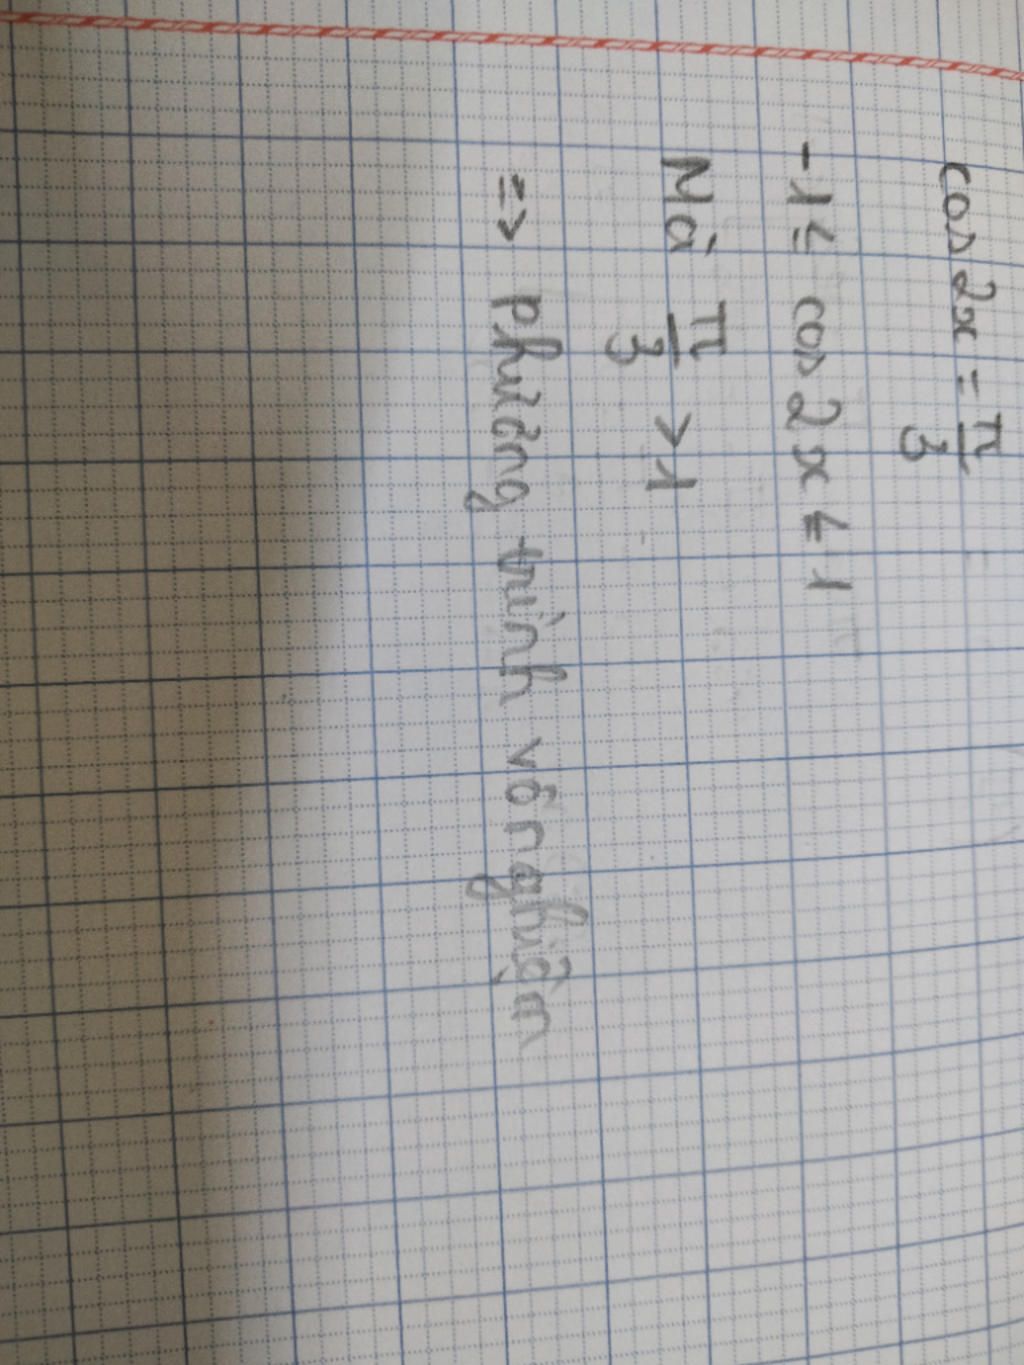 cos 2x = π/3
-1 ≤ cos 2x ≤ 1
Mà π/3 > 1
=> phương trình vô nghiệm